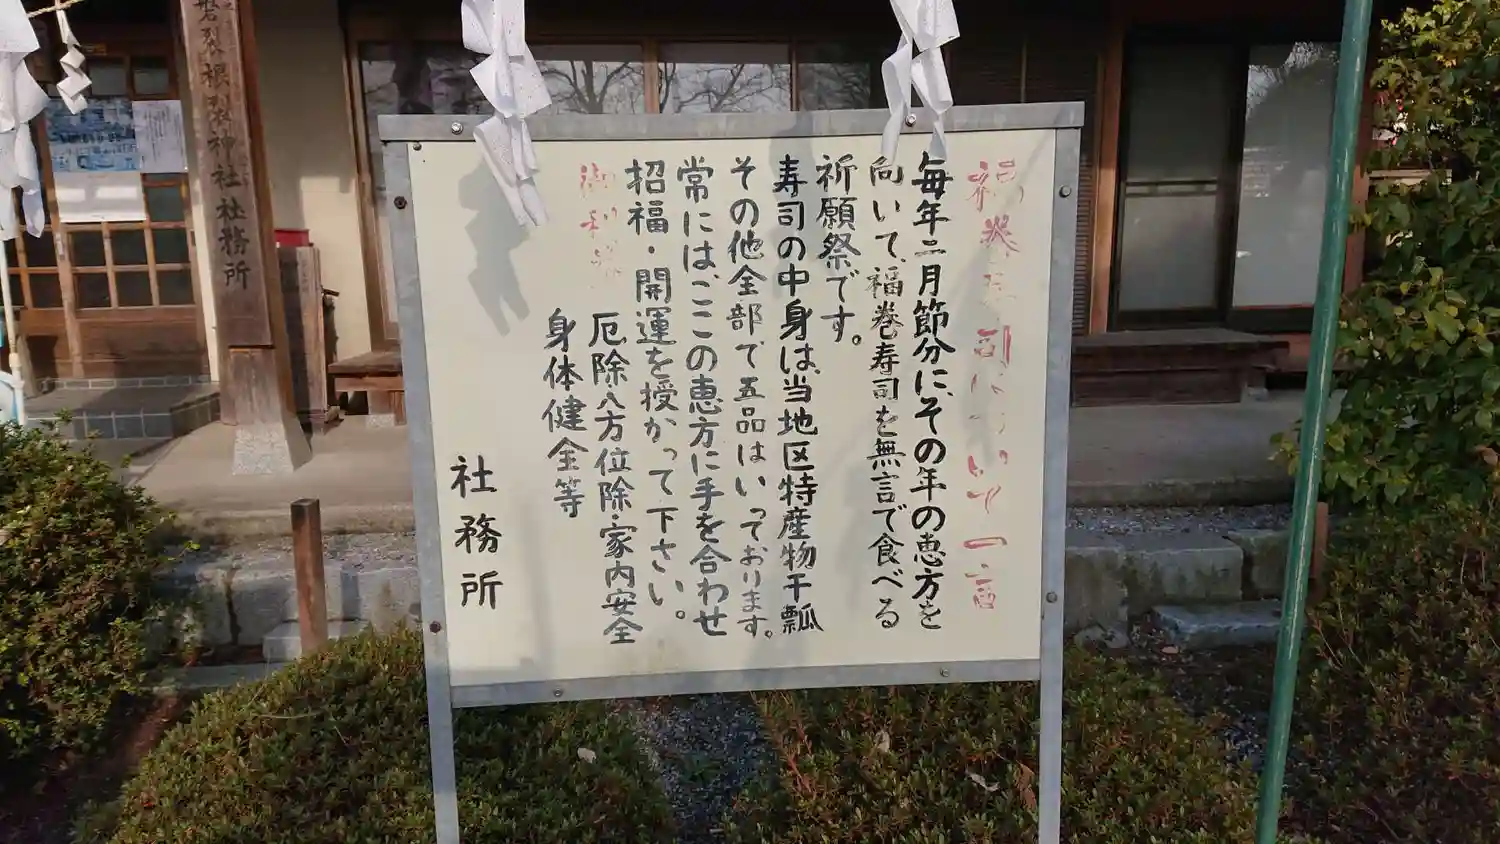 福巻寿司について一言
毎年二月節分に、その年の恵方を
向いて、福巻寿司を無言で食べる
祈願祭です。
寿司の中身は当地区特産物干瓢
その他全部で五品はいっております。
常には、ここの恵方に手を合わせ
招福・開運を授かって下さい。
御利益
厄除八方位除・家内安全
身体健全等
社務所
磐裂根裂神社社務所